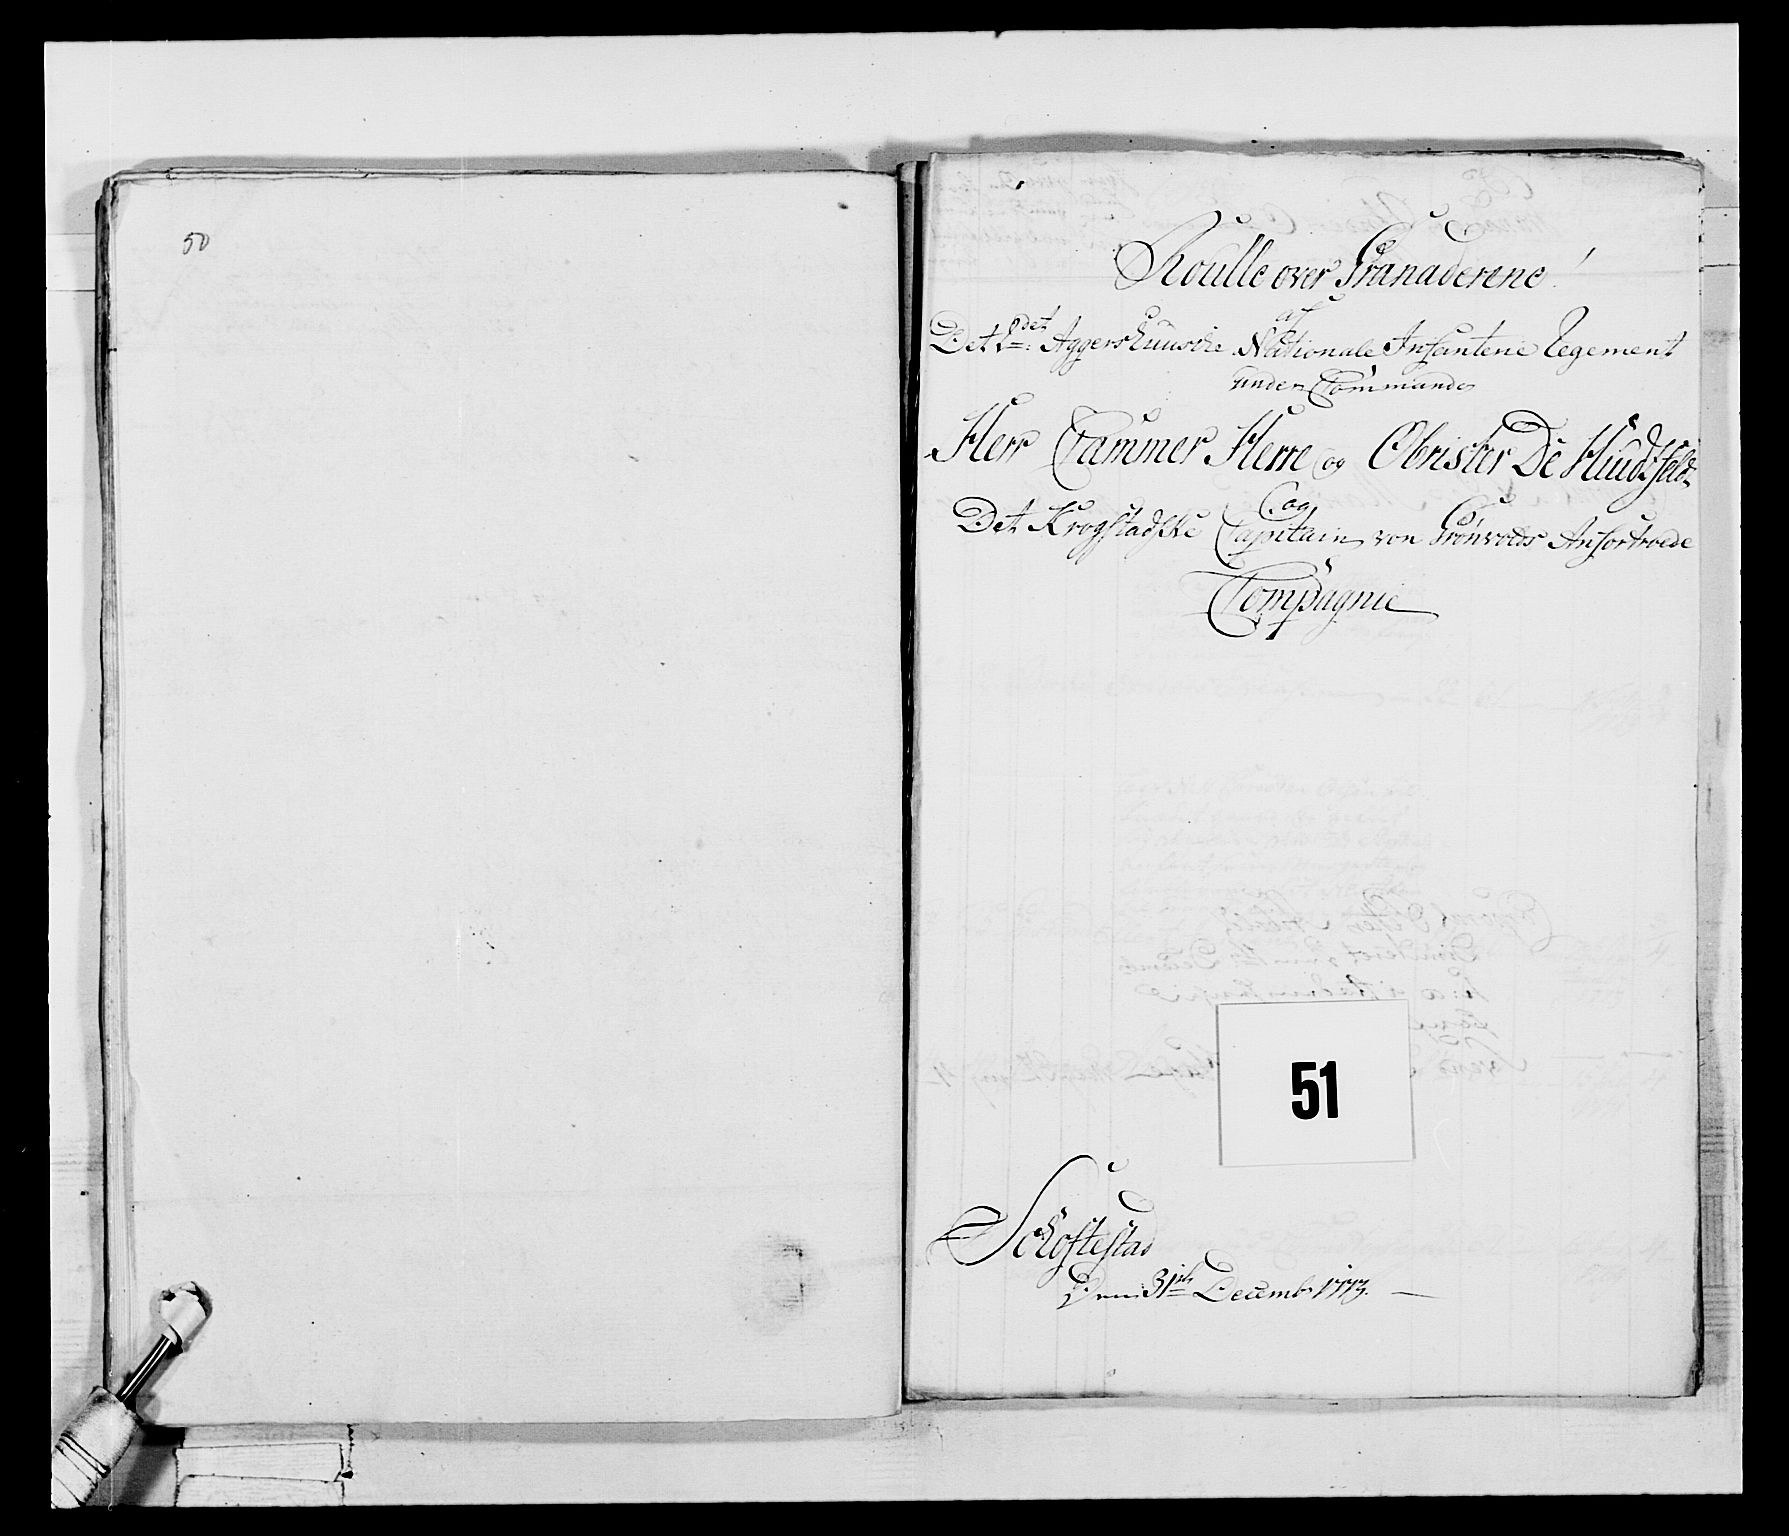 50
Roulle over Granaderene!
af
Det 1det Aggershuusche Nationale Infanterie Regement
under Commando
Herr Cammer Herre og Obrister De Hundtfeldt
og
Det Krogstadske Capitain von Grönvolds Anfortroede
Compagnie
51
Schoftestad
Den 31te Decembr 1773.